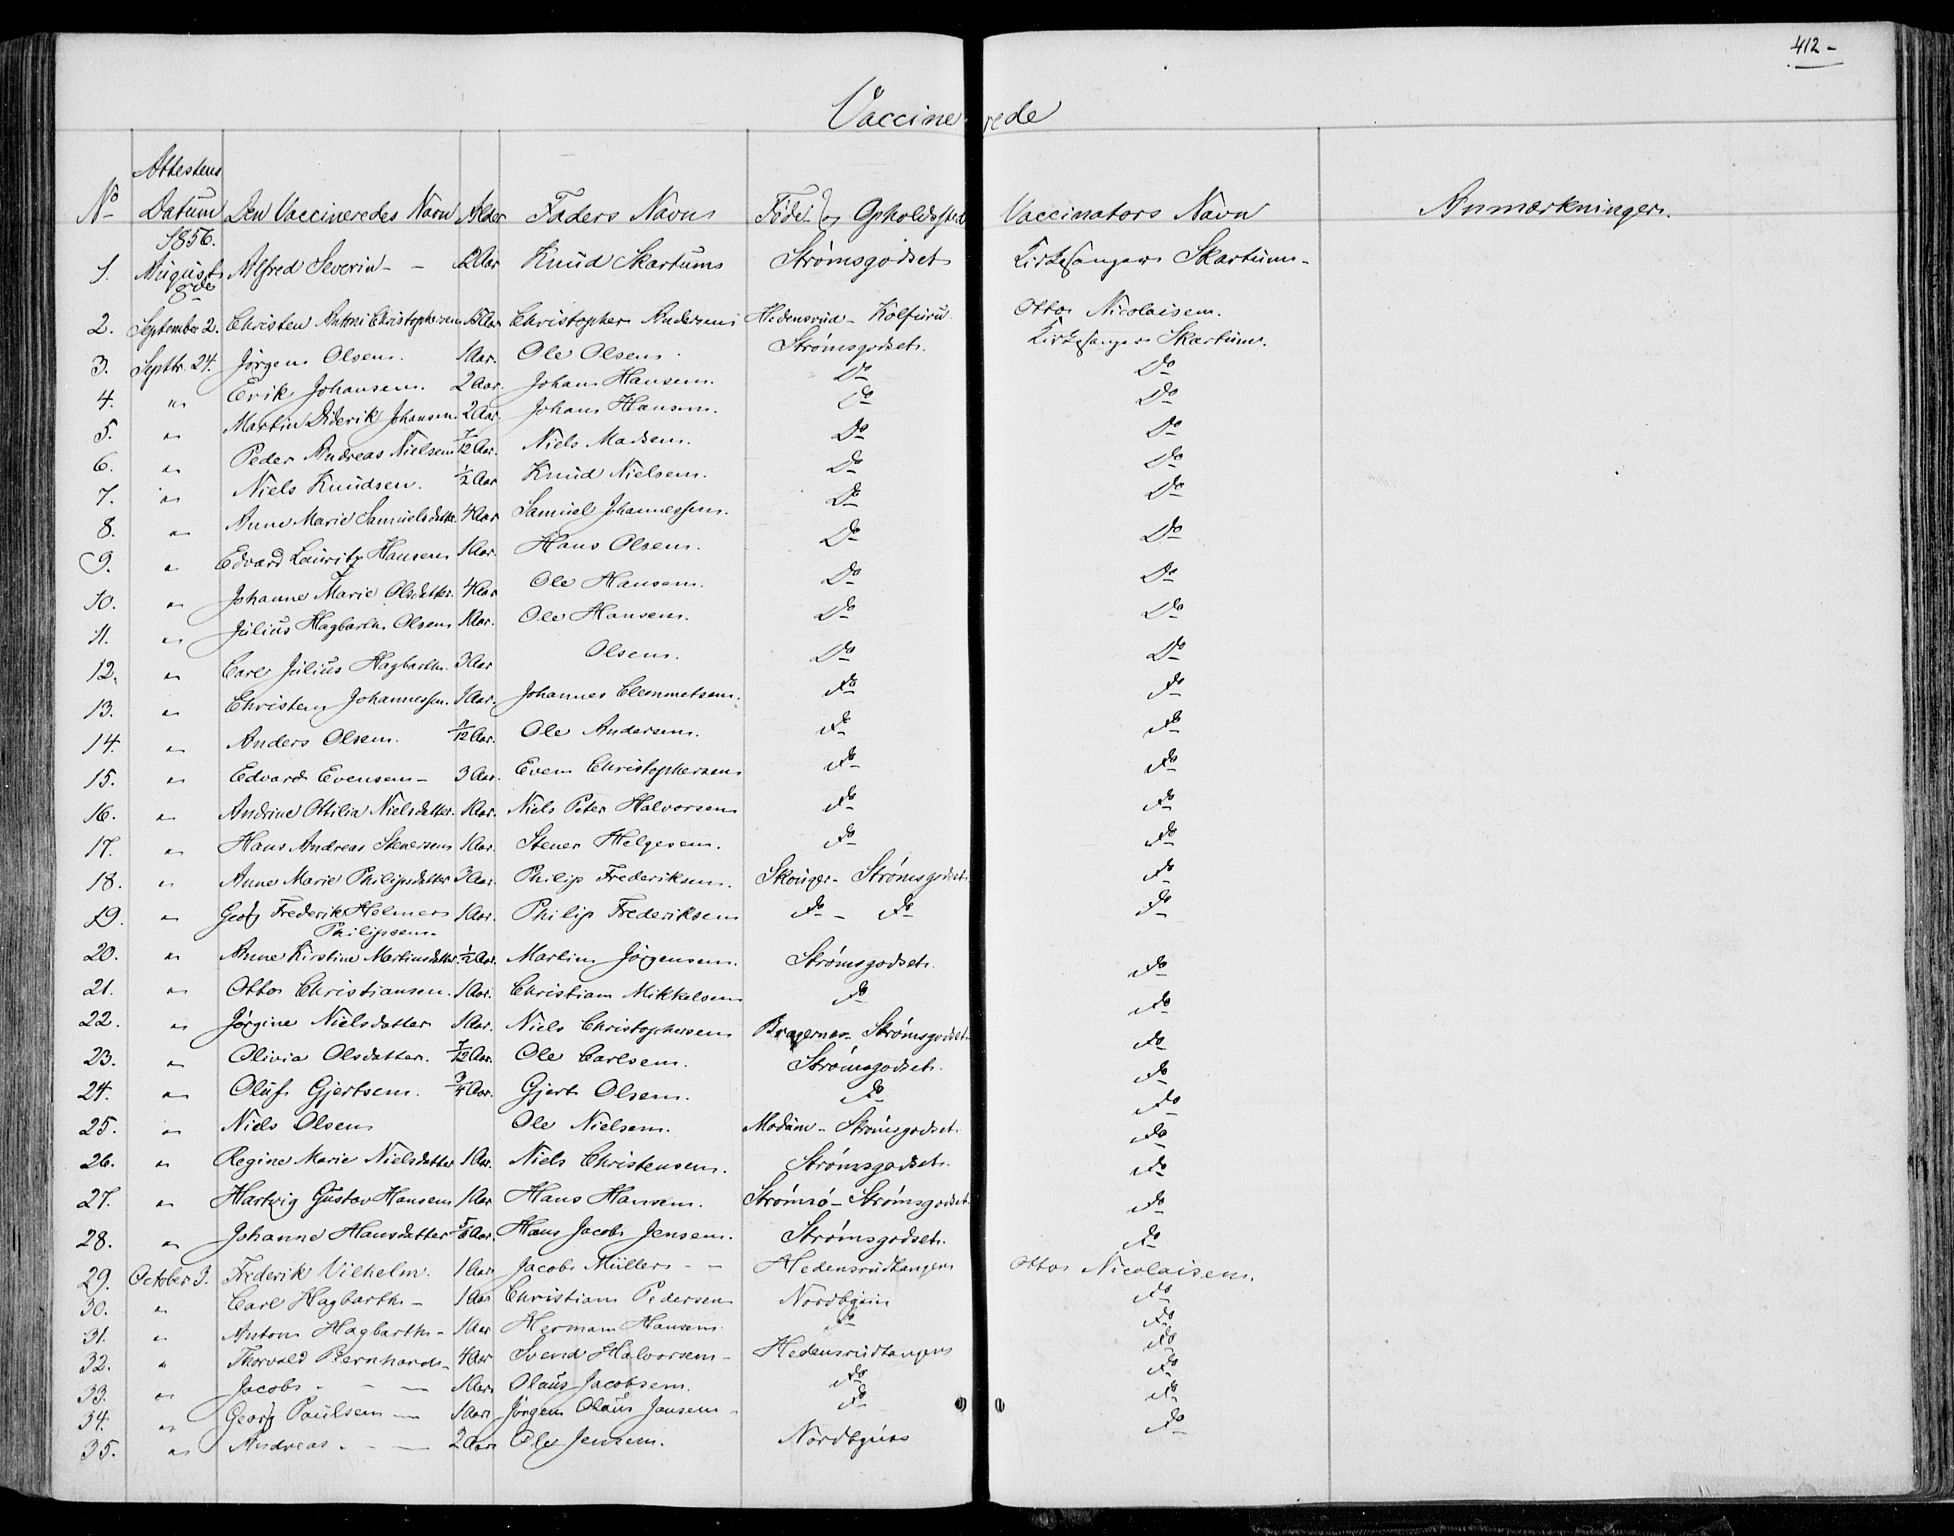 412 -
Vaccinerede
No Attestens Datum Den Vaccineredes Navn Alder Faders Navn Føde- og Opholdssted Vaccinators Navn Anmærkninger.
1856.
1. August 8de Alfred Severin - - Aar Knud Skartum Strømsgodset Kirkesanger Skartum -
2. September 2. Christen Anton Christophersen Aar Christopher Andersen Hedensrud - Otto Nicolaisen.
3. Septbr. 24. Jørgen Olsen. 1 Aar. Ole Olsen. Strømsgodset. Kirkesanger Skartum.
4. " Erik Johansen. 2 Aar. Johan Hansen. Do Do
5. " Martin Diderik Johansen 2 Aar. Johan Hansen. Do Do
6. " Peder Andreas Nielsen 7/12 Aar. Niels Madsen. Do Do
7. " Niels Knudsen. 1/2 Aar Knud Nielsen. Do Do
8. " Anne Marie Samuelsdatter 4 Aar Samuel Johannessen. Do Do
9. " Edvard Lauritz Hansen 1 Aar. Hans Olsen. Do Do
10. " Johanne Marie Olsdatter. 4 Aar Ole Hansen. Do Do
11. " Julius Hagbarth Olsen 1 Aar. Ole Hansen. Do Do
12. " Carl Julius Hagbarth. 3 Aar Olsen. Do Do
13. " Christen Johannessen. 1 Aar. Johannes Clemmetsen. Do Do
14. " Anders Olsen. /12 Aar. Ole Andersen. Do Do
15. " Edvard Evensen - 3 Aar. Even Christophersen Do Do
16. " Andrine Ottilia Nielsdatter. 1 Aar. Niels Peter Halvorsen Do Do
17. " Hans Andreas Stenersen 1 Aar. Stener Helgesen. Do Do
18. " Anne Marie Philipsdatter 3 Aar. Philip Frederiksen. Skouger - Strømsgodset Do
19. " Georg Frederik Helmer Philipsen - 1 Aar. Philip Frederiksen Do - Do Do
20. " Anne Kirstine Martinsdatter. 1/2 Aar. Martin Jørgensen. Strømsgodset. Do
21. " Otto Christiansen. 1 Aar. Christian Mikkelsen Do Do
22. " Jørgine Nielsdatter 1 Aar. Niels Christophersen Bragernæs - Strømsgodset. Do
23. " Olivia Olsdatter. 7/12 Aar. Ole Carlsen. Strømsgodset. Do
24. " Oluf Gjertsen. 3/4 Aar. Gjert Olsen. Do Do
25. " Niels Olsen Ole Nielsen. Modum - Strømsgodset. Do
26. " Regine Marie Nielsdatter 1 Aar. Niels Christensen. Strømsgodset. Do
27. " Hartvig Gustav Hansen 1 Aar Hans Hansen. Strømsø - Strømsgodset. Do
28. " Johanne Hansdatter 5/6 Aar. Hans Jacob Jensen. Strømsgodset. Do
29. October 3. Frederik Vilhelm. 1 Aar Jacob Müller - - Hedensrudtangen Otto Nicolaisen.
30. " Carl Hagbarth - 1 Aar Christian Pedersen Nordbyen Do
31. " Anton Hagbarth - 1 Aar Herman Hansen Do Do
32. " Thorvald Bernhard - 4 Aar Svend Halvorsen - Hedensrudtangen Do
33. " Jacob - - - 1 Aar. Olaus Jacobsen. Do Do
34. " Georg Paulsen - 1 Aar Jørgen Olaus Jansen - Do Do
35. " Andreas - - 2 Aar Ole Jensen. Nordbyen Do